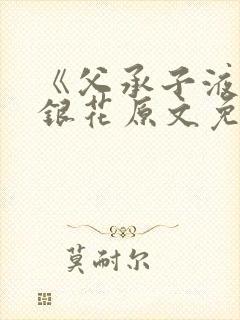 《父承子液
銀花原文免
莫耐尔